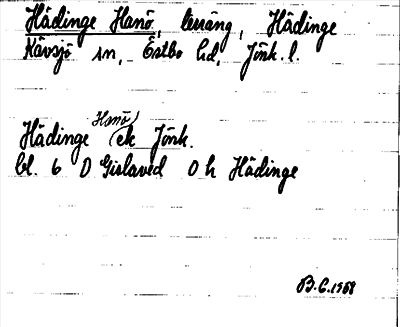 Hädinge Hanö, terräng, Hädinge
Kävsjö sn, Östbo hd, Jönk. l.
Hädinge Hanö ek Jönk.
bl. 6 D Gislaved O h Hädinge
B.C. 1968